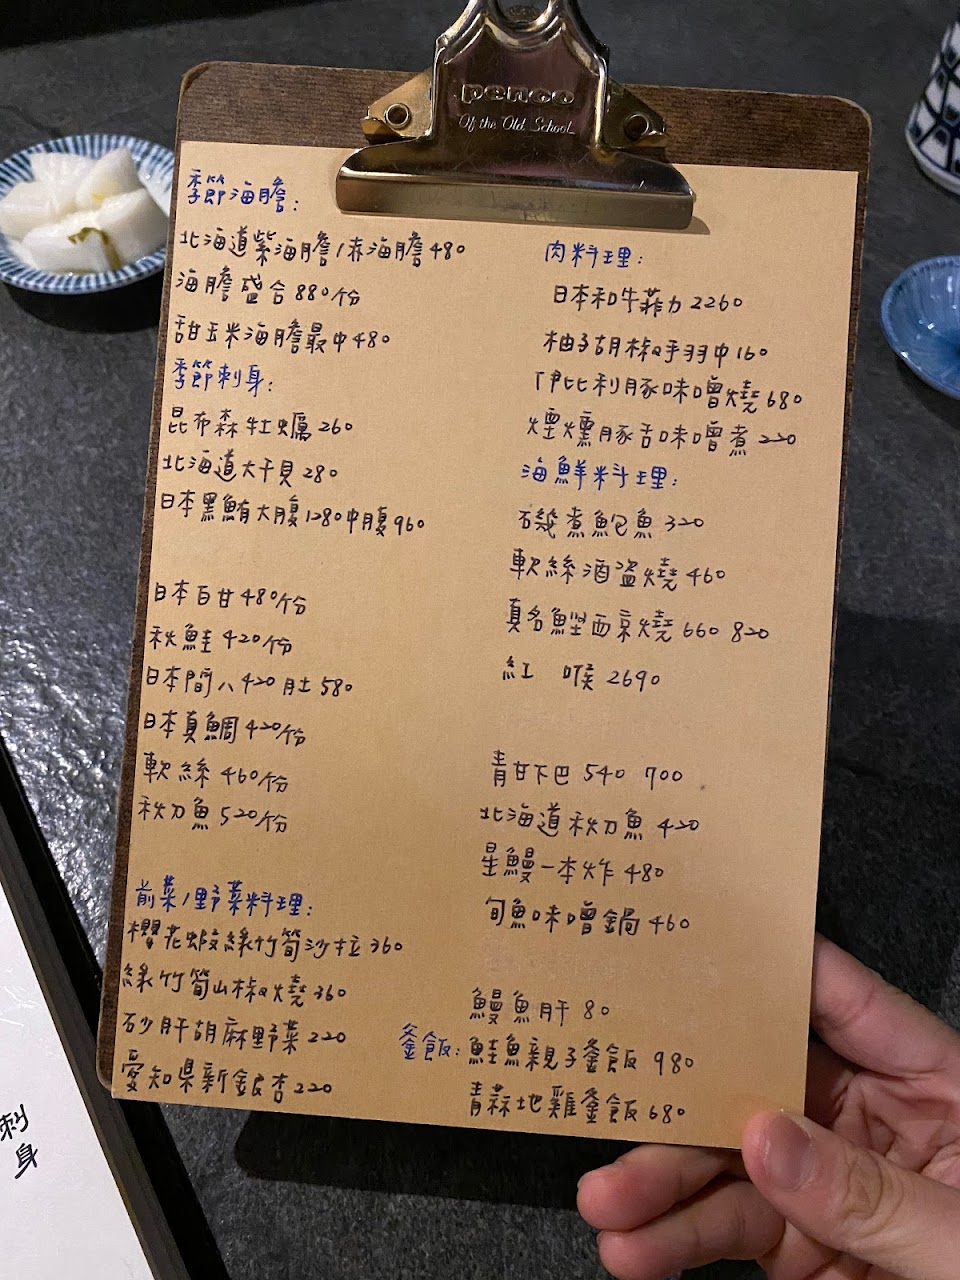 penco
Of the Old School
季節海膽:
北海道紫海膽/赤海膽480
海膽盛合880/份
甜玉米海膽最中480
季節刺身:
昆布森牡蠣260
北海道大干貝280
日本黑鮪大腹1280中腹960
日本白甘480/份
秋鮭420/份
日本間八420肚580
日本真鯛420/份
軟絲460/份
秋刀魚520/份
前菜/野菜料理:
櫻花蝦綠竹筍沙拉360
綠竹筍山椒燒360
砂肝胡麻野菜220
愛知県新銀杏220
肉料理:
日本和牛菲力2260
柚子胡椒手羽中160
伊比利豚味噌燒680
煙燻豚舌味噌煮220
海鮮料理:
磯煮鮑魚320
軟絲酒盜燒460
真名鰹西京燒660 820
紅 喉2690
青甘下巴540 700
北海道秋刀魚420
星鰻一本炸480
旬魚味噌鍋460
鰻魚肝80
釜飯:鮭魚親子釜飯980
青蒜地雞釜飯680
刺身